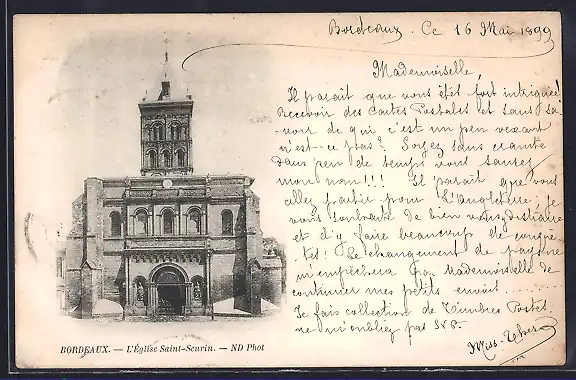 Bordeaux, Ce 16 Mai 1899
Mademoiselle,
Il parait que vous êtes fort intriguée
Recevoir des Cartes Postales et sans sa-
voir de qui c'est un peu vexant
n'est-ce pas? Soyez sans crainte
dans peu de temps vous saurez
mon nom!!! Il parait que vous
allez partir pour l'Angleterre, je
vous souhaite de bien vous distraire
et d'y faire beaucoup de conquê-
tes! Le changement de pays ne
m'empêchera pas Mademoiselle de
continuer mes petits envois........
Je fais collection de Timbres Postes.
ne m'oubliez pas SVP.
BORDEAUX. — L'Église Saint-Seurin. — ND Phot